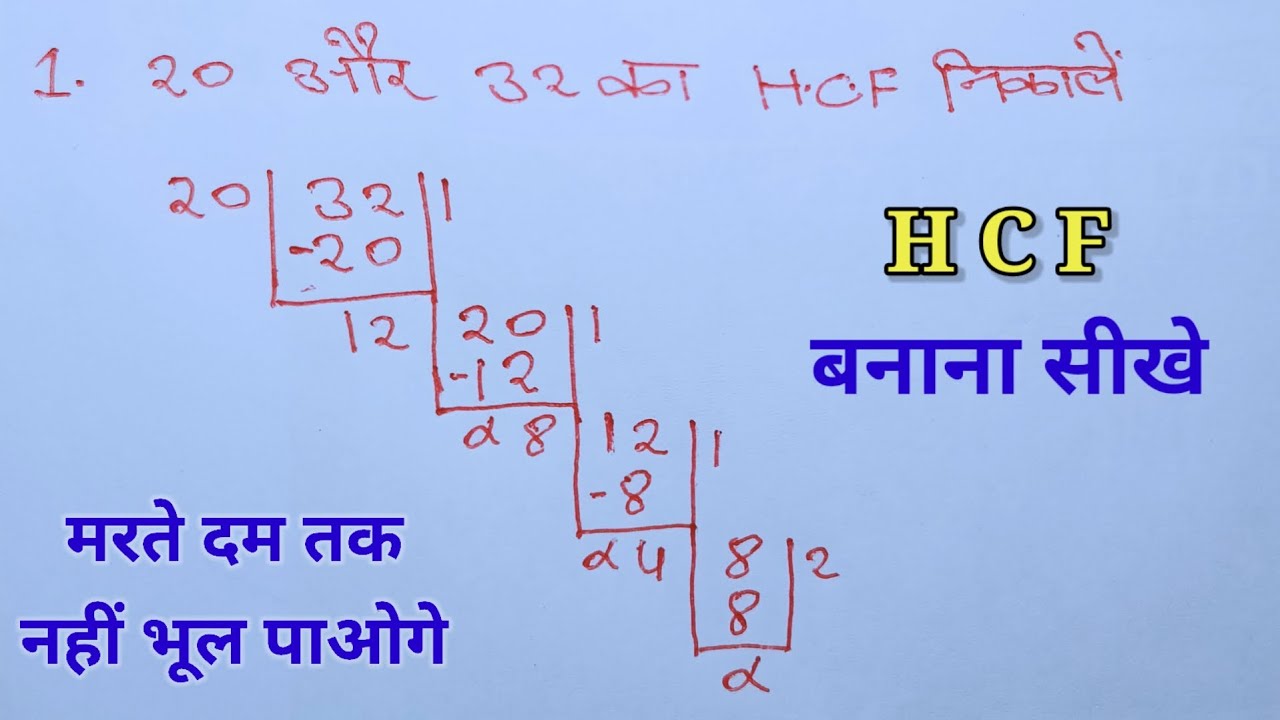 1. 20 और 32 का H.C.F निकालें
20 32 1
-20
12 20 1
-12
α 8 12 1
-8
α 4 8 2
8
α
H C F
बनाना सीखे
मरते दम तक
नहीं भूल पाओगे